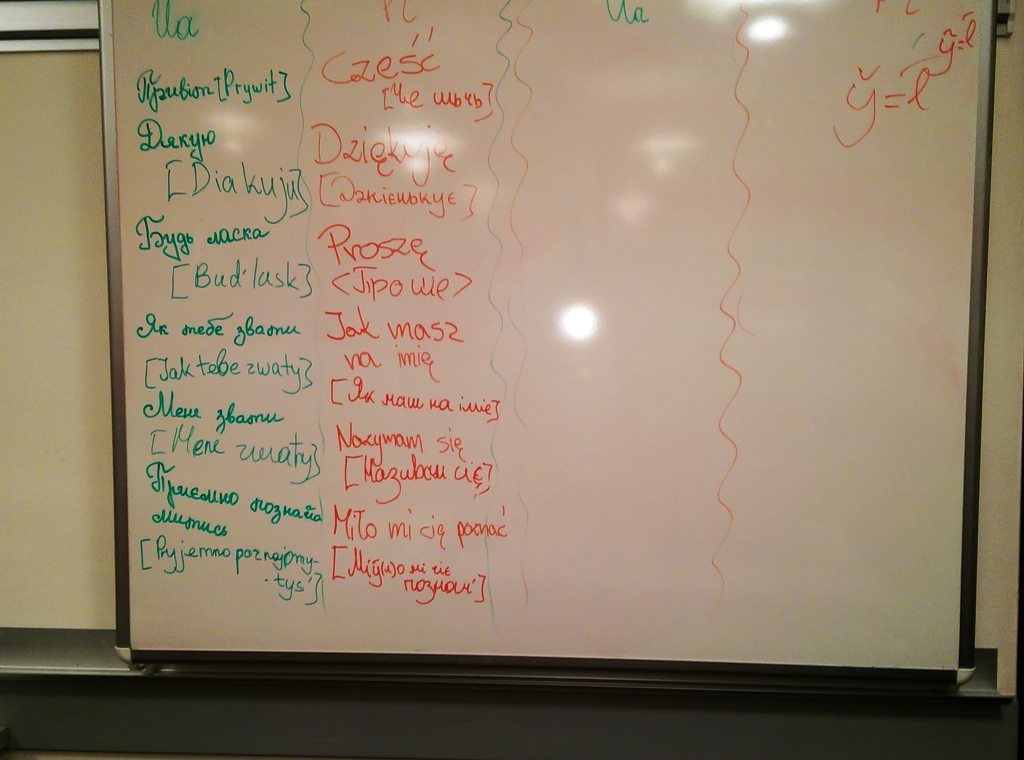 Ua
PL
Ua
PL
Привіт [Prywit]
Дякую
[Diakuju]
Будь ласка
[Bud' lask]
Як тебе звати
[Jak tebe zwaty]
Мене звати
[Mene zwaty]
Приємно познайо
митись
[Pryjemno poznajomy-
-tys']
Cześć
[Че шьчь]
Dziękuję
[Джєнькує]
Proszę
<Проше>
Jak masz
na imię
[Як маш на імiє]
Nazywam się
[Називам сіє]
Miło mi cię poznać
[Мі ў(и)о мі чіє
познач']
ў=ł
ў=ł